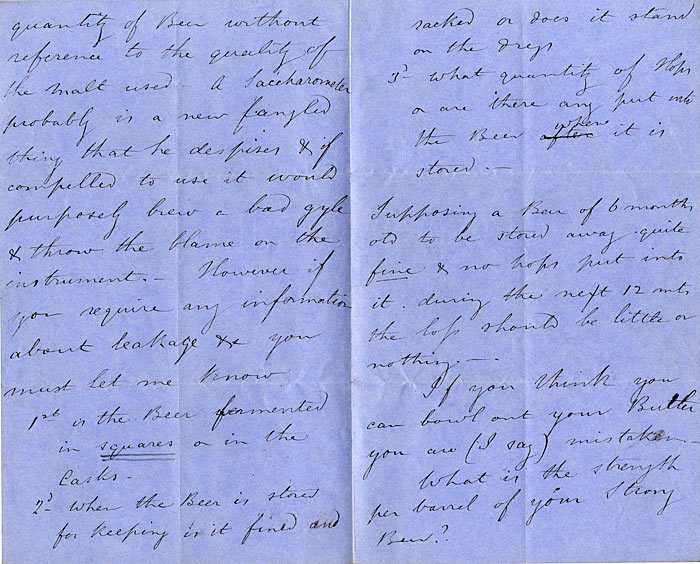 quantity of Beer without
reference to the quality of
the malt used - A Saccharometer
probably is a new fangled
thing that he despises & if
compelled to use it would
purposely brew a bad gyle
& throw the blame on the
instrument. - However if
you require any information
about leakage &c you
must let me know
1st is the Beer fermented
in squares or in the
Casks -
2d when the Beer is stored
for keeping is it fined and
racked or does it stand
on the dregs
3d - what quantity of Hops
or are there any put into
the Beer after when it is
stored. -
Supposing a Beer of 6 months
old to be stored away quite
fine & no hops put into
it. during the next 12 mts
the loss should be little or
nothing. -
If you think you
can bowl out your Butler
you are (I say) mistaken. -
What is the strength
per barrel of your Strong
Beer?